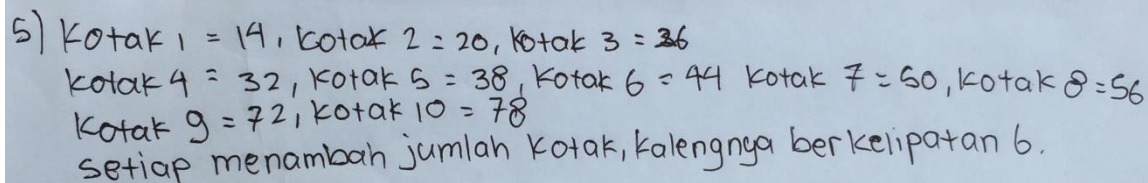 5) Kotak 1 = 14, kotak 2 = 20, kotak 3 = 26
kotak 4 = 32, kotak 5 = 38, kotak 6 = 44 kotak 7 = 50, kotak 8 = 56
Kotak 9 = 72, kotak 10 = 78
setiap menambah jumlah kotak, kalengnya berkelipatan 6.